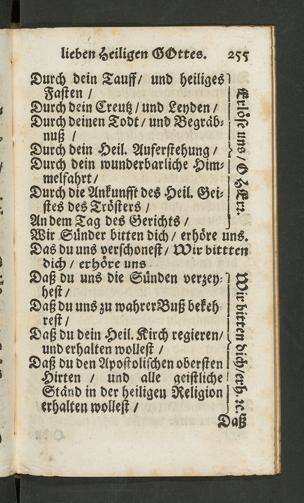 lieben Heiligen GOttes. 255
Durch dein Tauff/ und heiliges
Fasten /
Durch dein Creutz / und Leyden /
Durch deinen Todt / und Begräb-
nuß /
Durch dein Heil. Auferstehung /
Durch dein wunderbarliche Him-
melfahrt /
Durch die Ankunfft des Heil. Gei-
stes des Trösters /
An dem Tag des Gerichts /
Erlöse uns / O HErr.
Wir Sünder bitten dich / erhöre uns.
Das du uns verschonest / Wir bittten
dich / erhöre uns
Daß du uns die Sünden verzey-
hest /
Daß du uns zu wahrer Buß bekeh
rest /
Daß du dein Heil. Kirch regieren/
und erhalten wollest /
Daß du den Apostolischen obersten
Hirten / und alle geistliche
Ständ in der heiligen Religion
erhalten wollest /
Wir bitten dich/ erh. ꝛc.
Daß